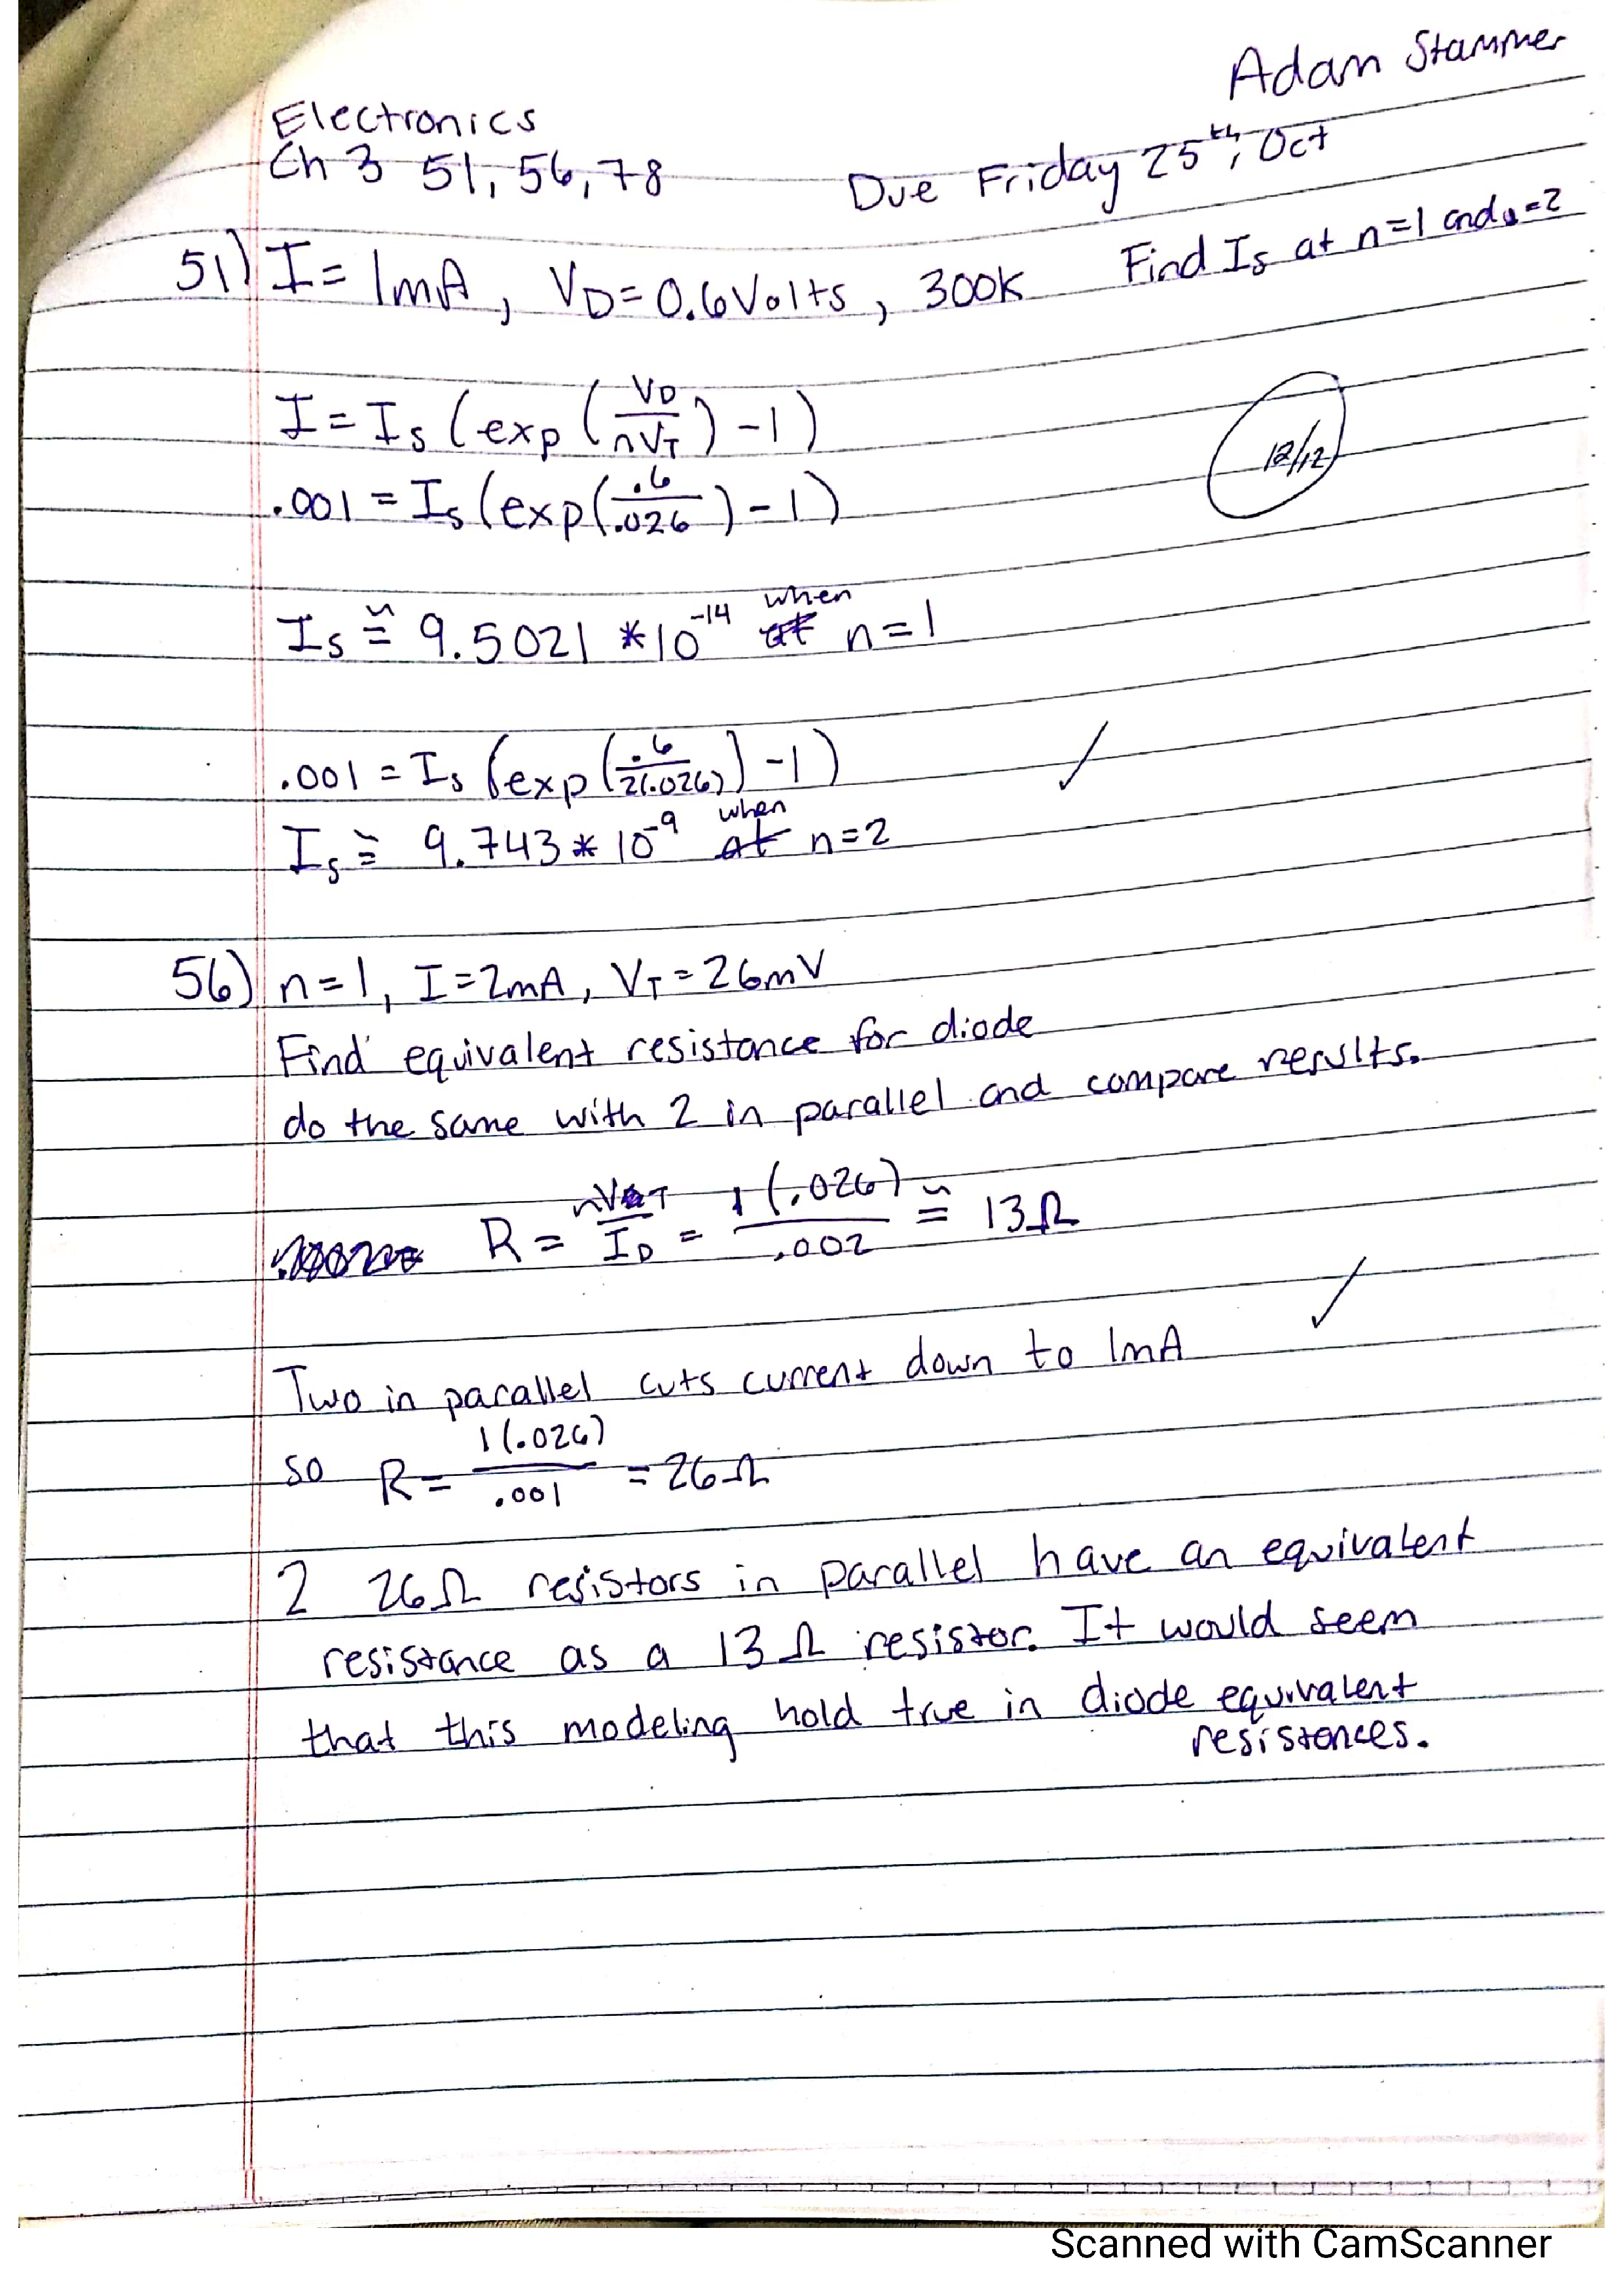 Adam Stammer
Electronics
Ch 3 51, 56, 78
Due Friday 25th, Oct
51) I = 1mA, VD = 0.6Volts, 300K Find Is at n=1 and n=2
I = Is (exp (VD/nVT) - 1)
.001 = Is (exp(.6/.026) - 1)
12/12
Is ≅ 9.5021 *10^-14 when at n=1
.001 = Is (exp(.6/2(.026)) - 1)
Is ≅ 9.743 * 10^-9 when at n=2
56) n=1, I=2mA, VT=26mV
Find equivalent resistance for diode
do the same with 2 in parallel and compare results.
R = nVT/ID = 1(.026)/.002 ≅ 13Ω
Two in parallel cuts current down to 1mA
so R = 1(.026)/.001 = 26Ω
2 26Ω resistors in parallel have an equivalent
resistance as a 13Ω resistor. It would seem
that this modeling hold true in diode equivalent
resistances.
Scanned with CamScanner